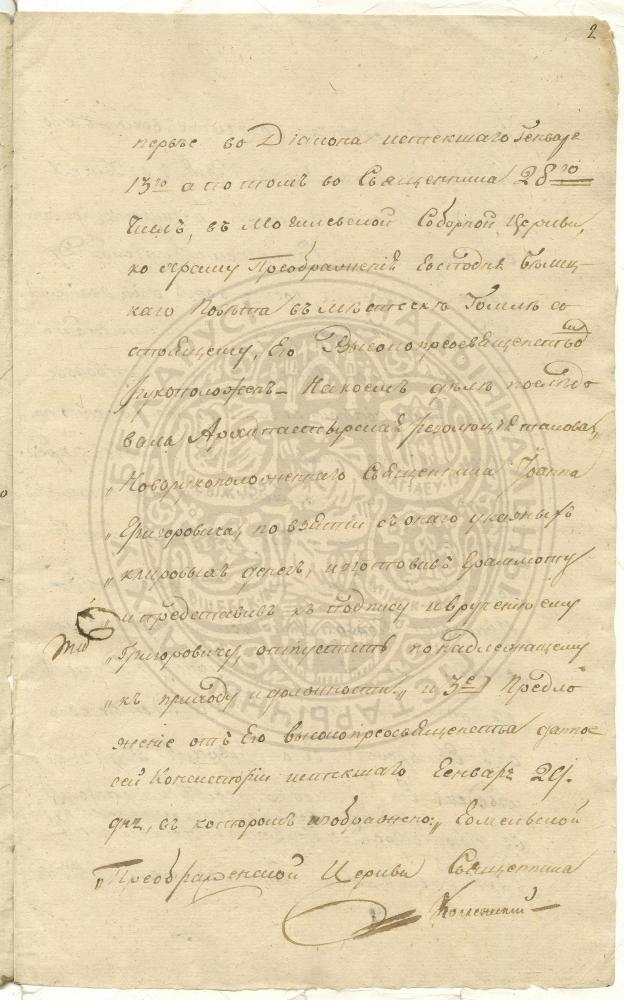 2
первѣе во Діакона истекшаго Генваря
13го а потомъ во Священника 28го
Числъ, въ Могилевской Соборной Церкви,
ко храму Преображенія Господня Бѣлиц-
каго Повѣта въ мѣстечкѣ Гомлѣ со
стоящему, Его Высокопреосвященствомъ
Рукоположенъ – На коемъ дѣлѣ послѣдо
вала Архипастырская резолюція такова„
„Новорукоположеннаго Священника Іоанна
„Григоровича, по взятіи съ онаго указныхъ
„клировыхъ денегъ, изготовивъ Грамоту
„и представивъ къ подпису и врученію ему
„Григоровичу, отпустить по надлежащему
„къ приходу и должности„ и 3е Предло
женіе отъ Его высокопреосвященства данное
сей Консисторіи истекшаго Генваря 29.
дня, въ которомъ изображено: „Гомельской
„Преображенской Церкви Священника